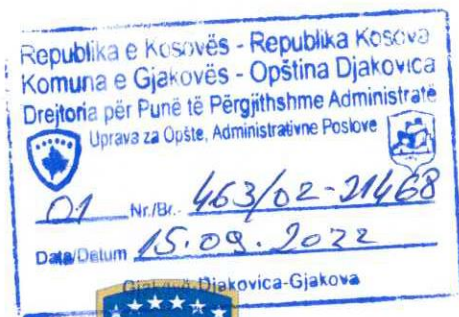 Republika e Kosovës - Republika Kosova
Komuna e Gjakovës - Opština Djakovica
Drejtoria për Punë të Përgjithshme Administratë
Uprava za Opšte, Administrativne Poslove
01 Nr./Br.- 463/02-21468
Data/Datum 15.09.2022
Gjakovë-Djakovica-Gjakova